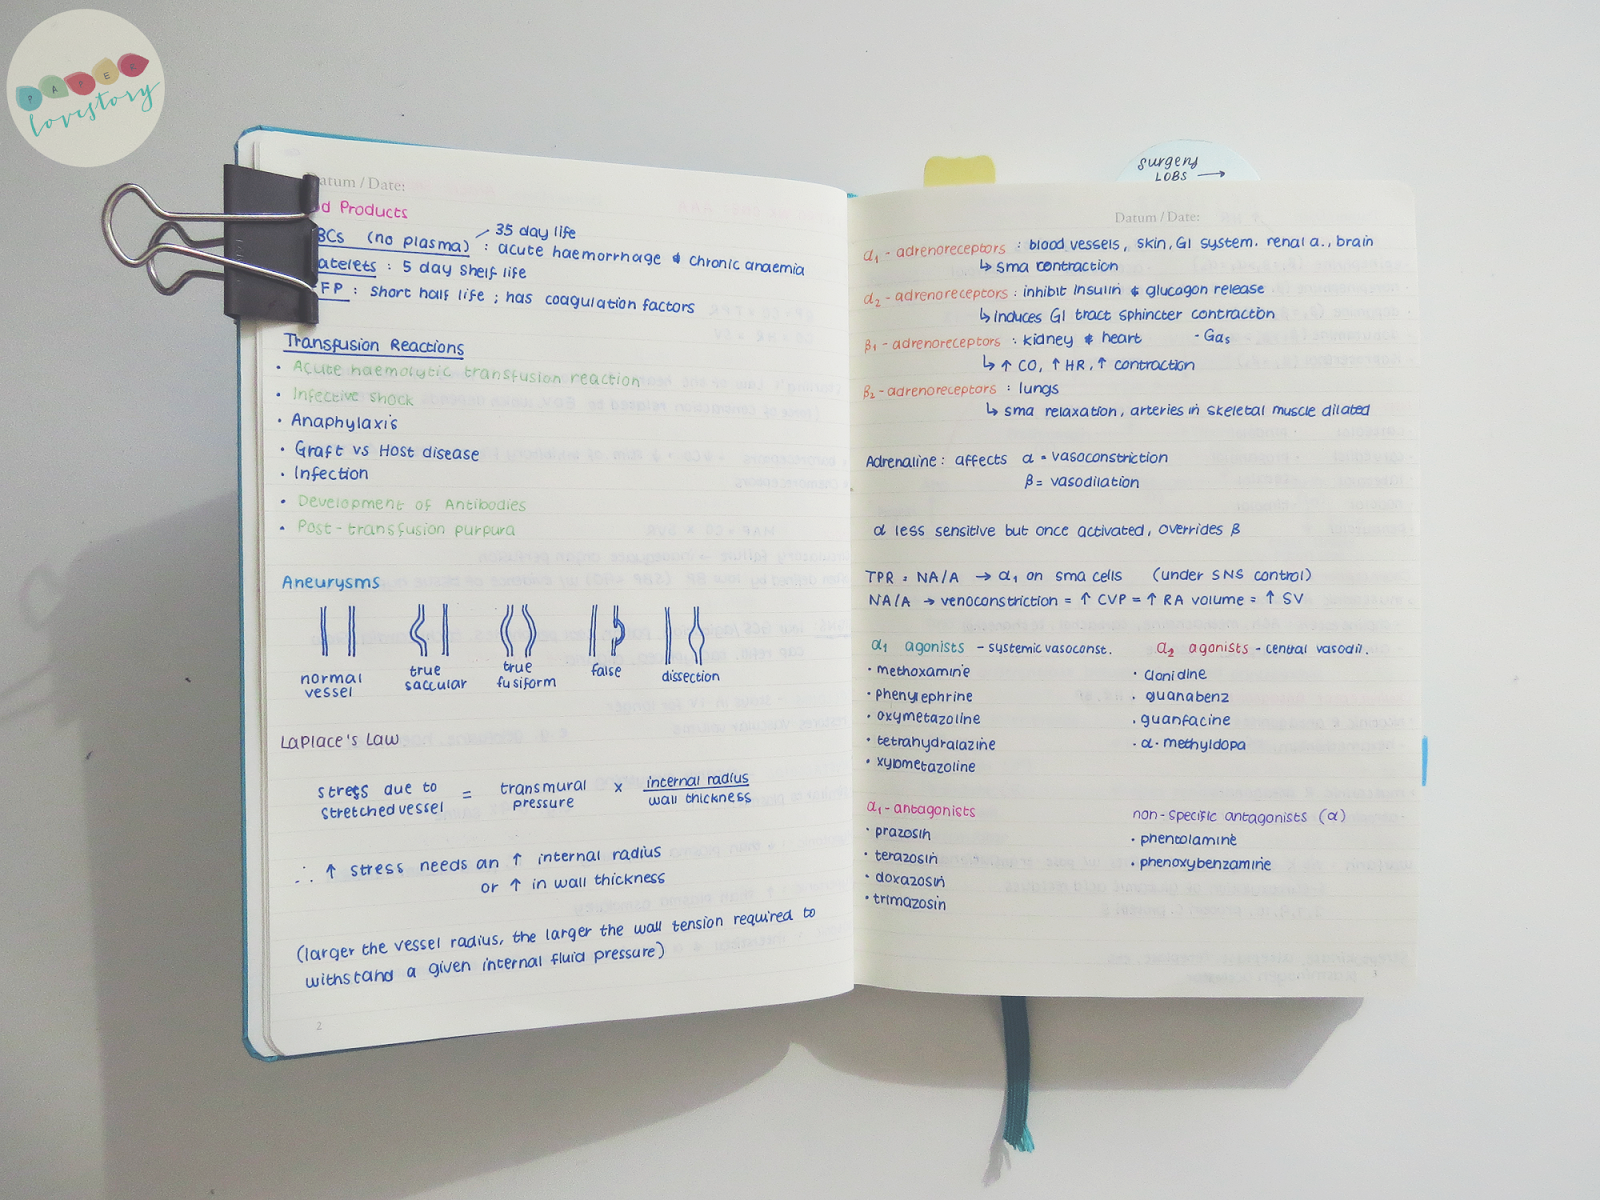 PAPER
lovestory
surgery
LOBS →
Datum / Date:
d Products
35 day life
BCs (no plasma) : acute haemorrhage & chronic anaemia
atelets : 5 day shelf life
FP : short half life ; has coagulation factors
Transfusion Reactions
· Acute haemolytic transfusion reaction
· Infective shock
· Anaphylaxis
· Graft vs Host disease
· Infection
· Development of Antibodies
· Post-transfusion purpura
Aneurysms
normal vessel
true saccular
true fusiform
false
dissection
LaPlace's Law
stress due to stretched vessel = transmural pressure x internal radius / wall thickness
∴ ↑ stress needs an ↑ internal radius
or ↑ in wall thickness
(larger the vessel radius, the larger the wall tension required to
withstand a given internal fluid pressure)
2
Datum / Date:
α1 - adrenoreceptors : blood vessels, skin, GI system. renal a., brain
↳ sma contraction
α2 - adrenoreceptors : inhibit insulin & glucagon release
↳ induces GI tract sphincter contraction
β1 - adrenoreceptors : kidney & heart - Gαs
↳ ↑ CO, ↑ HR, ↑ contraction
β2 - adrenoreceptors : lungs
↳ sma relaxation, arteries in skeletal muscle dilated
Adrenaline : affects α = vasoconstriction
β = vasodilation
α less sensitive but once activated, overrides β
TPR = NA/A → α1 on sma cells (under SNS control)
NA/A → venoconstriction = ↑ CVP = ↑ RA volume = ↑ SV
α1 agonists - systemic vasoconst.
· methoxamine
· phenylephrine
· oxymetazoline
· tetrahydralazine
· xylometazoline
α2 agonists - central vasodil.
· clonidine
· guanabenz
· guanfacine
· α-methyldopa
α1 - antagonists
· prazosin
· terazosin
· doxazosin
· trimazosin
non-specific antagonists (α)
· phentolamine
· phenoxybenzamine
3